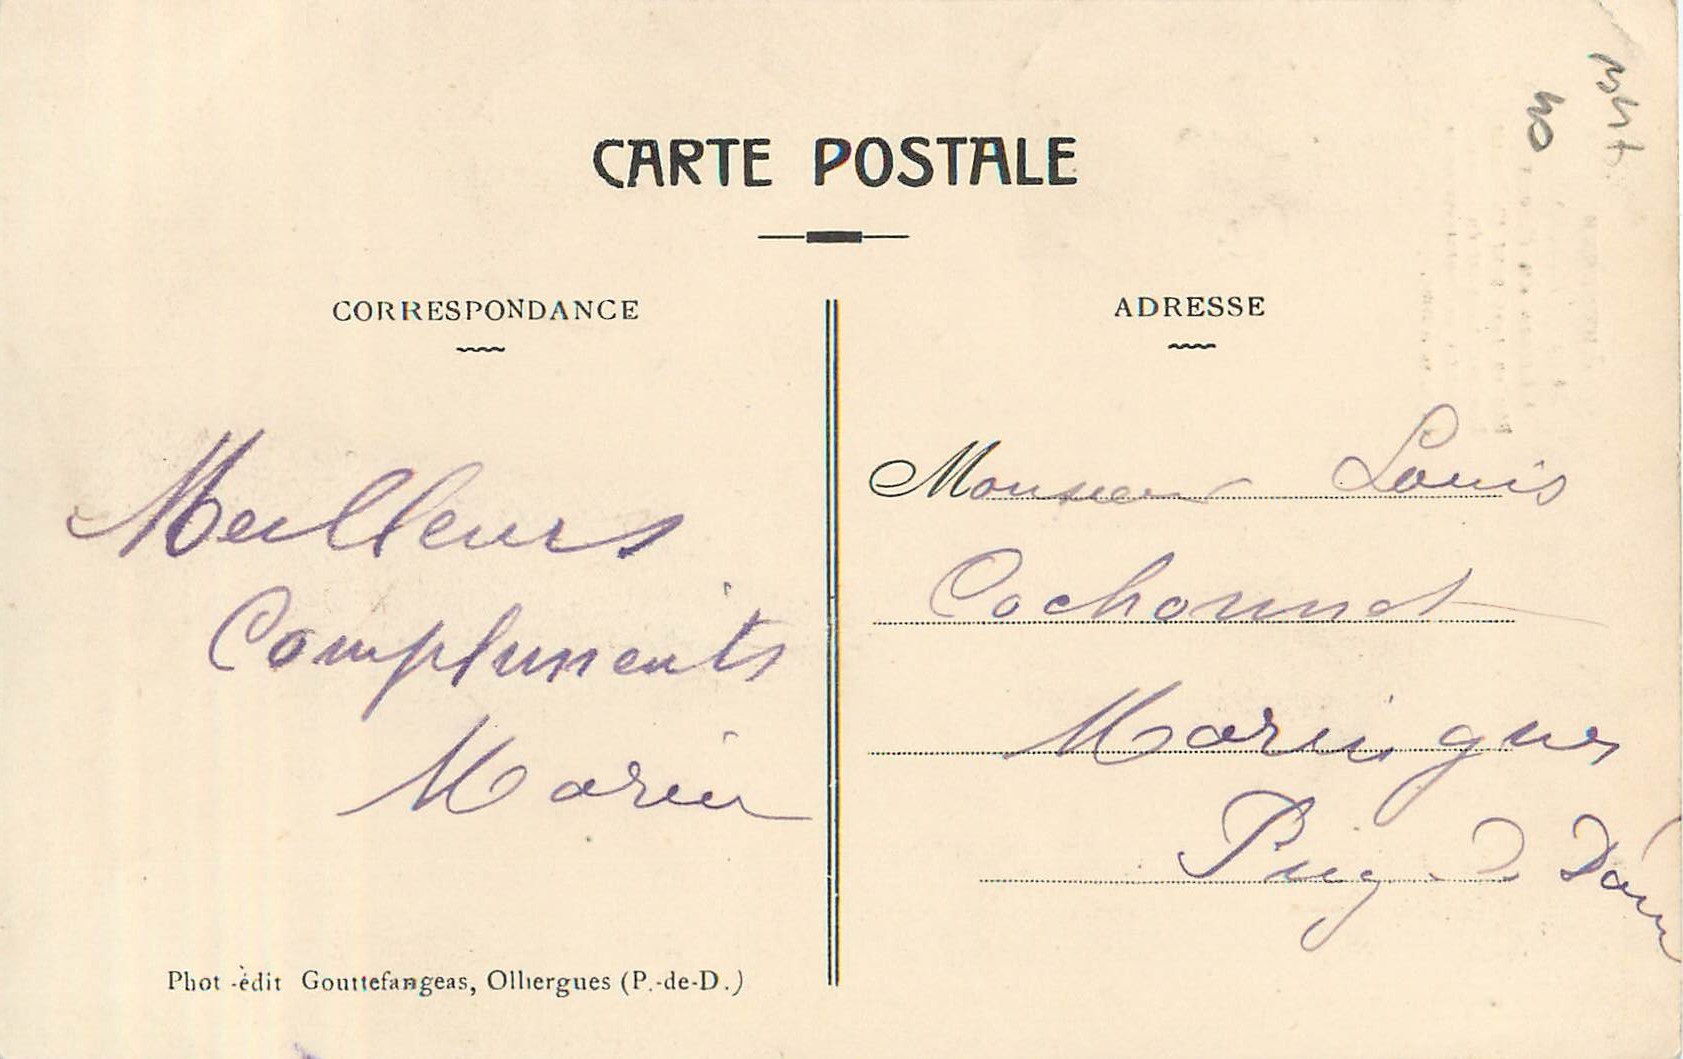 CARTE POSTALE
CORRESPONDANCE
ADRESSE
Meilleurs
Compliments
Marin
Monsieur Louis
Cochonnet
Maringues
Puy D Dôm
Phot-édit Gouttefangeas, Olliergues (P.-de-D.)